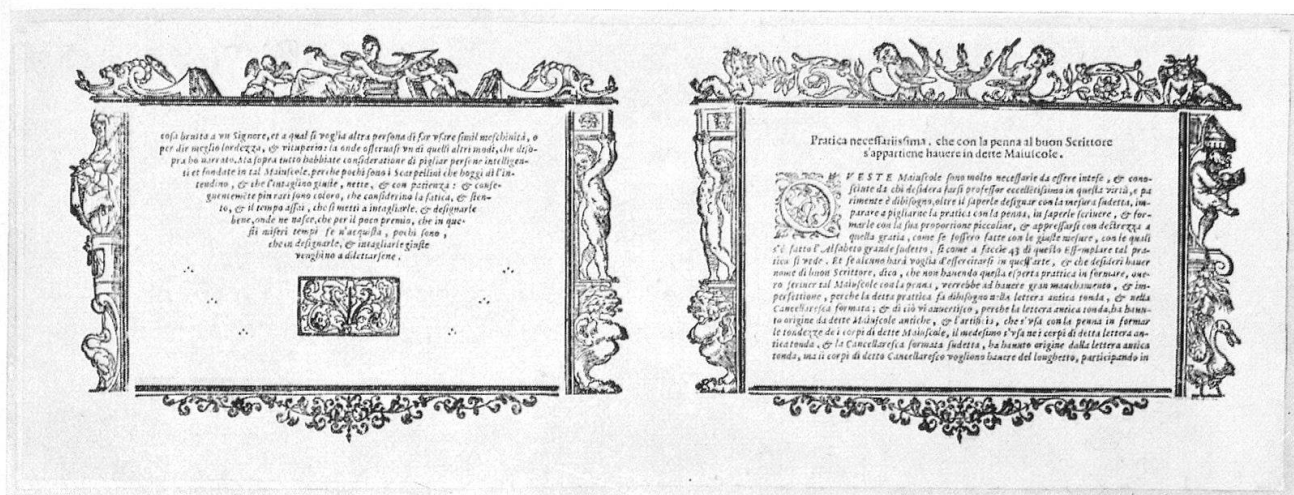 cosa brutta a vn Signore, et a qual si voglia altra persona di far vsare simil meschinità, o
per dir meglio lordezza, & vituperio: la onde osseruasi vn di quelli altri modi, che diso-
pra ho narrato. Ma sopra tutto habbiate consideratione di pigliar persone intelligen-
ti et fondate in tal Maiuscole, perche pochi sono i Scarpellini che hoggi di l'in-
tendino, & che l'intaglino giuste, nette, & con patienza: & conse-
guentemẽte piu rari sono coloro, che considerino la fatica, & sten-
to, & il tempo assai, che si metti a intagliarle, & designarle
bene, onde ne nasce, che per il poco premio, che in que-
sti miseri tempi se n'acquista, pochi sono,
che in designarle, & intagliarle giuste
venghino a dilettarsene.
Pratica necessariissima, che con la penna al buon Scrittore
s'appartiene hauere in dette Maiuscole.
QVESTE Maiuscole sono molto necessarie da essere intese, & cono-
sciute da chi desidera farsi professor eccellẽtissimo in questa virtù, e pa
rimente è dibisogno, oltre il saperle designar con la mesura sudetta, im-
parare a pigliarne la pratica con la penna, in saperle scriuere, & for-
marle con la sua proportione piccoline, & appressarsi con destrezza a
quella gratia, come se fossero fatte con le giuste mesure, con le quali
s'è fatto l'Alfabeto grande sudetto, si come a faccie 43 di questo Essemplare tal pra-
tica si vede. Et se alcuno harà voglia d'essercitarsi in quest'arte, & che desideri hauer
nome di buon Scrittore, dico, che non hauendo questa esperta prattica in formare, oue-
ro scriuer tal Maiuscole con la penna, verrebbe ad hauere gran manchamento, & im-
perfettione, perche la detta prattica fa dibisogno nella lettera antica tonda, & nella
Cancellaresca formata; & di ciò vi auuertisco, perche la lettera antica tonda, ha hauu-
to origine da dette Maiuscole antiche, & l'artificio, che s'vsa con la penna in formar
le tondezze de i corpi di dette Maiuscole, il medesimo s'vsa ne i corpi di detta lettera an-
tica tonda, & la Cancellaresca formata sudetta, ha hauuto origine dalla lettera antica
tonda, ma i corpi di detto Cancellaresco vogliono hauere del longhetto, participando in